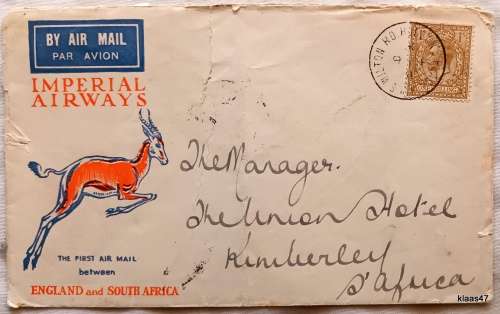 BY AIR MAIL
PAR AVION
IMPERIAL
AIRWAYS
WILTON RD
The Manager.
The Union Hotel
Kimberley
S'Africa
THE FIRST AIR MAIL
between
ENGLAND and SOUTH AFRICA
klaas47